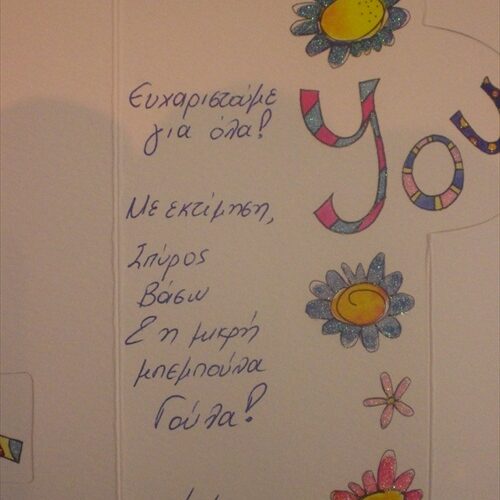 Ευχαριστούμε
για όλα!
You
Με εκτίμηση,
Σπύρος
Βάσω
& η μικρή
μπεμπούλα
Γούλα!